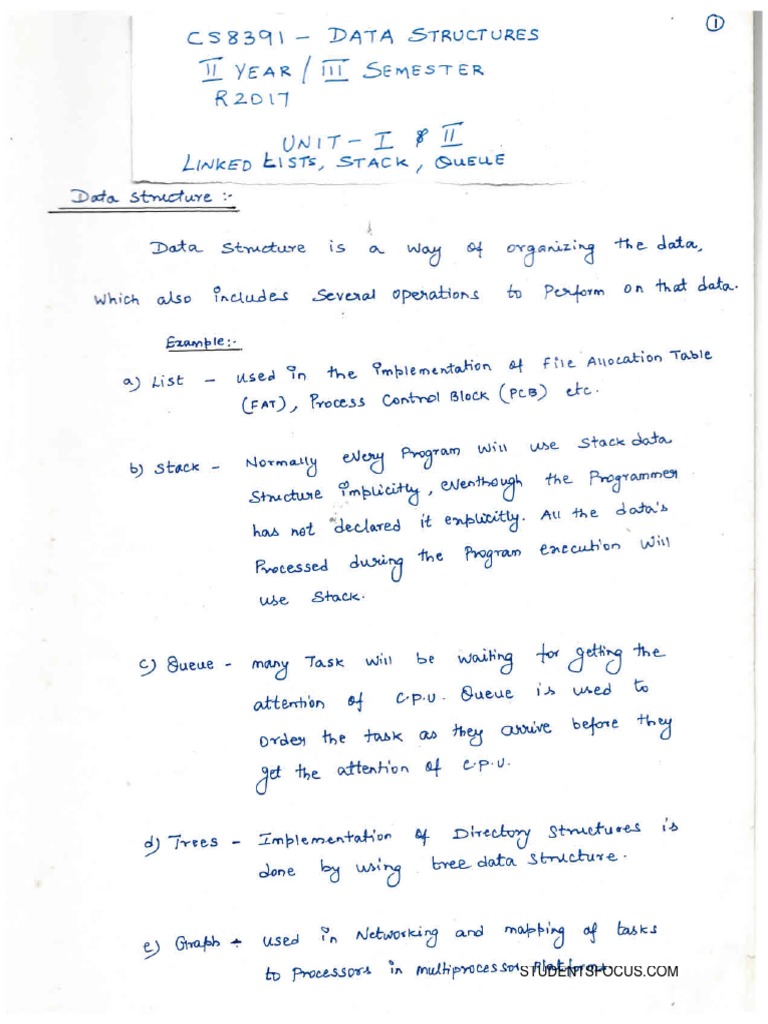 ①
CS8391 – DATA STRUCTURES
II YEAR / III SEMESTER
R2017
UNIT – I & II
LINKED LISTS, STACK, QUEUE
Data Structure :-
Data Structure is a way of organizing the data,
which also includes several operations to perform on that data.
Example:-
a) List – used in the implementation of File Allocation Table
(FAT), Process Control Block (PCB) etc.
b) Stack – Normally every Program will use Stack data
Structure implicitly, eventhough the Programmer
has not declared it explicitly. All the data's
Processed during the Program execution will
use Stack.
c) Queue – many Task will be waiting for getting the
attention of C.P.U. Queue is used to
order the task as they arrive before they
get the attention of C.P.U.
d) Trees – Implementation of Directory Structures is
done by using tree data structure.
e) Graph – used in Networking and mapping of tasks
to Processors in multiprocessor Platform.
STUDENTSFOCUS.COM